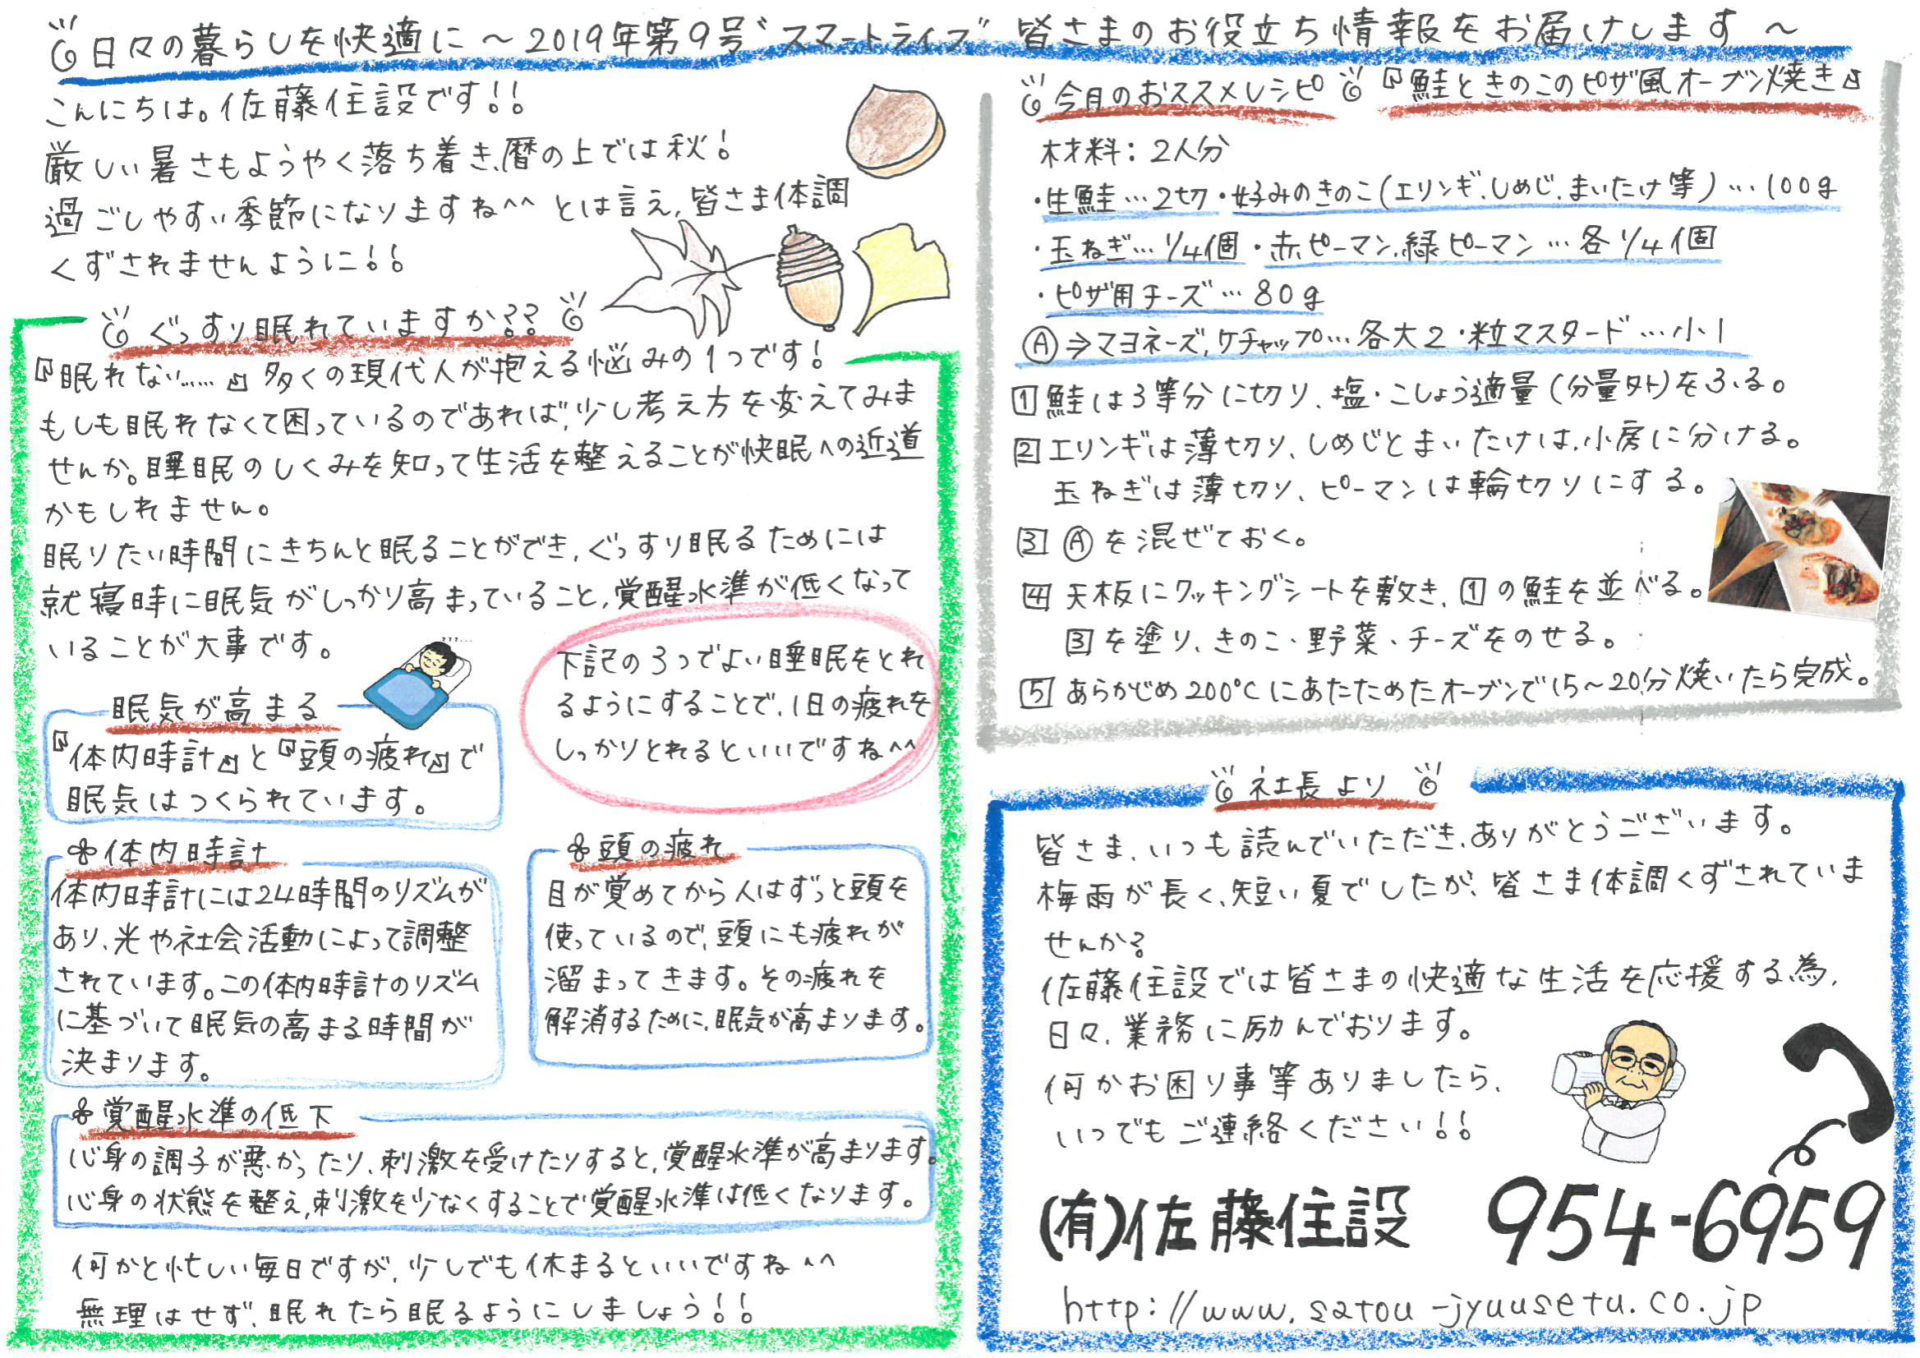 日々の暮らしを快適に ～ 2019年第9号 〝スマートライフ〟 皆さまのお役立ち情報をお届けします ～
こんにちは。佐藤住設です!!
厳しい暑さもようやく落ち着き、暦の上では秋!
過ごしやすい季節になりますね^^ とは言え、皆さま体調
くずされませんように!!
ぐっすり眠れていますか??
『眠れない……』多くの現代人が抱える悩みの1つです!
もしも眠れなくて困っているのであれば、少し考え方を変えてみま
せんか。睡眠のしくみを知って生活を整えることが快眠への近道
かもしれません。
眠りたい時間にきちんと眠ることができ、ぐっすり眠るためには
就寝時に眠気がしっかり高まっていること、覚醒水準が低くなって
いることが大事です。
???...
下記の3つでよい睡眠をとれ
るようにすることで、1日の疲れを
しっかりとれるといいですね^^
眠気が高まる
『体内時計』と『頭の疲れ』で
眠気はつくられています。
体内時計
体内時計には24時間のリズムが
あり、光や社会活動によって調整
されています。この体内時計のリズム
に基づいて眠気の高まる時間が
決まります。
頭の疲れ
目が覚めてから人はずっと頭を
使っているので、頭にも疲れが
溜まってきます。その疲れを
解消するために、眠気が高まります。
覚醒水準の低下
心身の調子が悪かったり、刺激を受けたりすると、覚醒水準が高まります。
心身の状態を整え、刺激を少なくすることで覚醒水準は低くなります。
何かと忙しい毎日ですが、少しでも休まるといいですね^^
無理はせず、眠れたら眠るようにしましょう!!
今月のおススメレシピ 『鮭ときのこのピザ風オーブン焼き』
材料：2人分
・生鮭…2切 ・好みのきのこ(エリンギ、しめじ、まいたけ等)…100g
・玉ねぎ…1/4個 ・赤ピーマン、緑ピーマン…各1/4個
・ピザ用チーズ…80g
Ⓐ⇒マヨネーズ、ケチャップ…各大2 ・粒マスタード…小1
1 鮭は3等分に切り、塩・こしょう適量(分量外)をふる。
2 エリンギは薄切り、しめじとまいたけは、小房に分ける。
玉ねぎは薄切り、ピーマンは輪切りにする。
3 Ⓐを混ぜておく。
4 天板にクッキングシートを敷き、1の鮭を並べる。
3を塗り、きのこ・野菜・チーズをのせる。
5 あらかじめ200℃にあたためたオーブンで15～20分焼いたら完成。
社長より
皆さま、いつも読んでいただき、ありがとうございます。
梅雨が長く、短い夏でしたが、皆さま体調くずされていま
せんか?
佐藤住設では皆さまの快適な生活を応援する為、
日々、業務に励んでおります。
何かお困り事等ありましたら、
いつでもご連絡ください!!
(有)佐藤住設 954-6959
http://www.satou-jyuusetu.co.jp